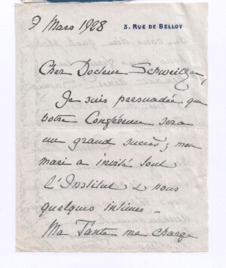 9 Mars 1928
3, RUE DE BELLOY
Cher Docteur Schweitzer,
Je suis persuadée que
votre Conférence sera
un grand succès ; mon
mari a invité tout
l'Institut & nous
quelques intimes _
Ma Tante me charge